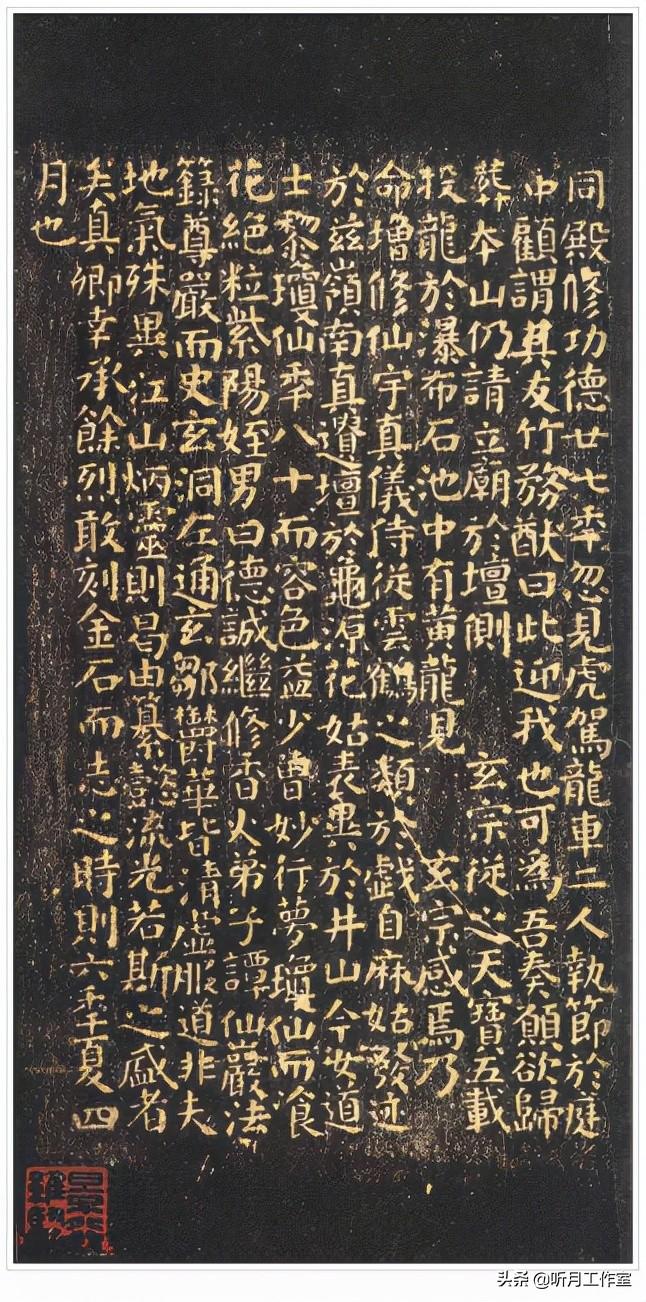 同殿修功德廿七年忽見虎駕龍車二人執節於庭
中顧謂其友竹務猷曰此迎我也可為吾奏願欲歸
葬本山仍請立廟於壇側 玄宗從之天寶五載
投龍於瀑布石池中有黃龍見 玄宗感焉乃
命增修仙宇真儀侍從雲鶴之類於戲自麻姑發迹
於茲嶺南真遺壇於龜源花姑表異於井山今女道
士黎瓊仙年八十而容色益少曾妙行夢瓊仙而飡
花絕粒紫陽姪男曰德誠繼修香火弟子譚仙巖法
籙尊嚴而史玄洞左通玄鄒鬱華皆清虛服道非夫
地氣殊異江山炳靈則曷由纂懿流光若斯之盛者
矣真卿幸承餘烈敢刻金石而志之時則六年夏四
月也
头条 @听月工作室